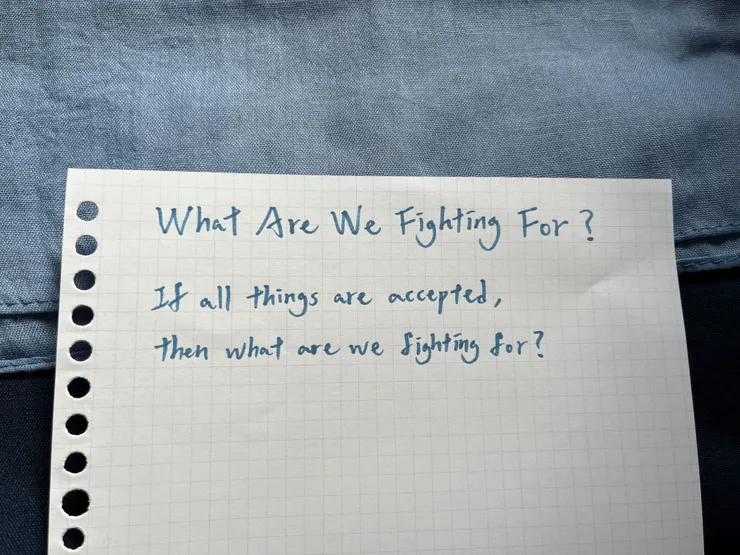 What Are We Fighting For?
If all things are accepted,
then what are we fighting for?